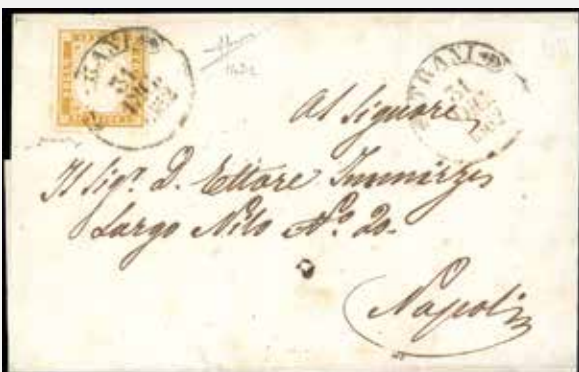 TRANI
31
1862
TRANI
31
1862
Al Signore
Il Sig.r D. Ettore
Largo Nilo N.o 20.
Napoli